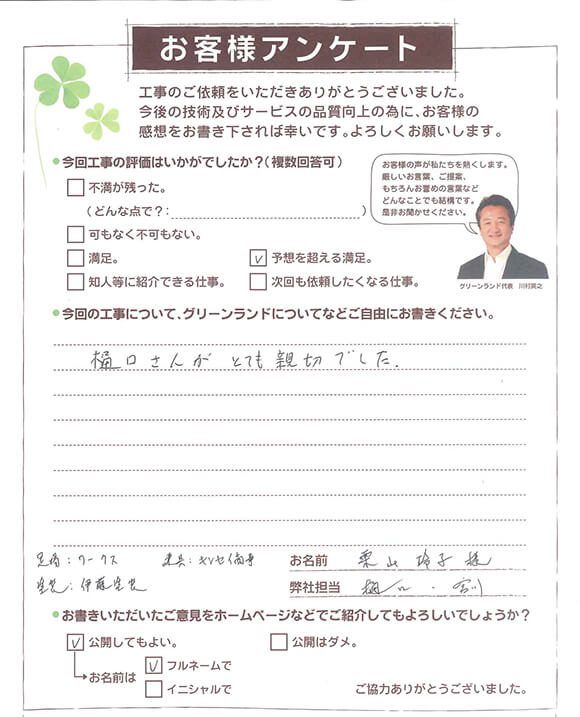 お客様アンケート
工事のご依頼をいただきありがとうございました。
今後の技術及びサービスの品質向上の為に、お客様の
感想をお書き下されば幸いです。よろしくお願いします。
今回工事の評価はいかがでしたか？（複数回答可）
お客様の声が私たちを熱くします。
厳しいお言葉、ご提案、
もちろんお誉めの言葉など
どんなことでも結構です。
是非お聞かせください。
不満が残った。
（どんな点で？：　）
可もなく不可もない。
満足。
予想を超える満足。
知人等に紹介できる仕事。
次回も依頼したくなる仕事。
グリーンランド代表　川村真之
今回の工事について、グリーンランドについてなどご自由にお書きください。
樋口さんが とても親切でした.
足場：ワークス
お名前　栗山 玲子 様
塗装：伊藤塗装
弊社担当　樋口・
お書きいただいたご意見をホームページなどでご紹介してもよろしいでしょうか？
公開してもよい。
公開はダメ。
お名前は
フルネームで
イニシャルで
ご協力ありがとうございました。